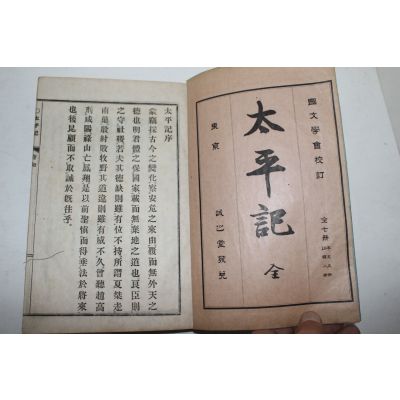 國文學會校訂
太平記 全
東京 誠之堂發兌
全七册
太平記序
蒙竊採古今之變化察安危之來由覆而無外天之
德也明君體之保國家載而無棄地之道也良臣則
之守社稷若夫其德缺則雖有位不持所謂夏桀走
南巢殷紂敗牧野其道違則雖有威不久曾聽趙高
刑咸陽祿山亡鳳翔是以前聖愼而得垂法於將來
也後昆顧而不取誡於既往乎